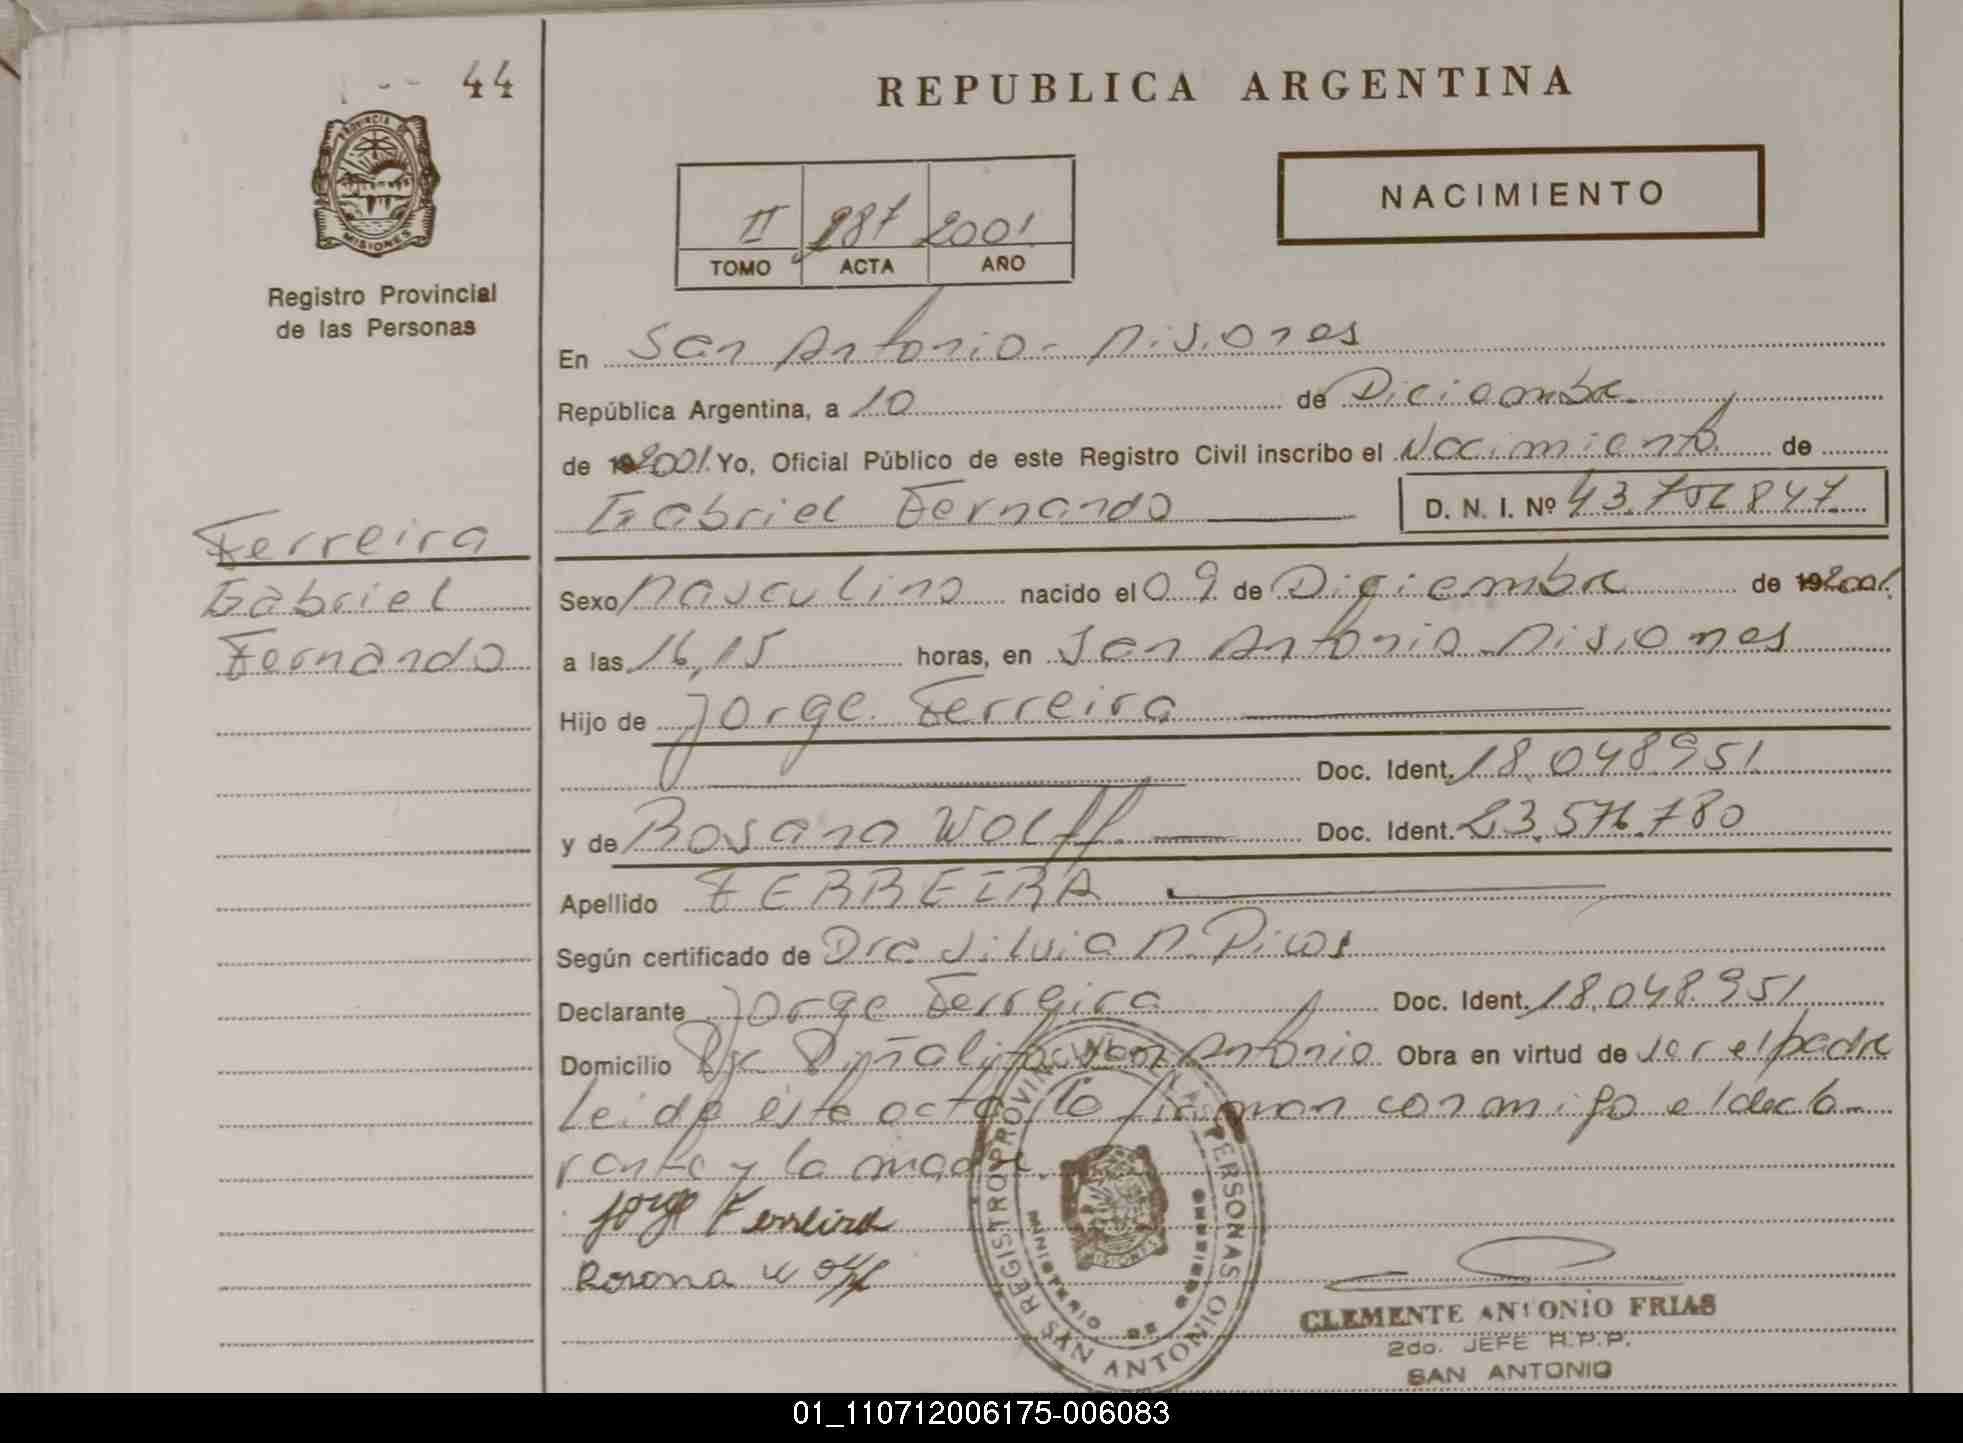 44
REPUBLICA ARGENTINA
PROVINCIA DE
MISIONES
NACIMIENTO
II 287 2001
TOMO ACTA AÑO
Registro Provincial
de las Personas
En San Antonio - Misiones
República Argentina, a 10 de Diciembre
de 2001 Yo, Oficial Público de este Registro Civil inscribo el Nacimiento de
Gabriel Fernando D. N. I. Nº
Ferreira
Gabriel
Fernando
Sexo Masculino nacido el 09 de Diciembre de 2001
a las 16,15 horas, en San Antonio Misiones
Hijo de Jorge Ferreira
Doc. Ident. 18.048951
y de Rosana Wolff Doc. Ident. 23.576.780
Apellido FERREIRA
Según certificado de Dra. Silvia M.
Declarante Jorge Ferreira Doc. Ident. 18.048.951
Domicilio San Antonio Obra en virtud de ser el padre
Leida este acta la firman conmigo el decla
rante y la madre.
Jorge Ferreira
Rosana Wolff
REGISTRO PROVINCIAL DE LAS PERSONAS
MINISTERIO DE GOBIERNO
MISIONES
SAN ANTONIO
CLEMENTE ANTONIO FRIAS
2do. JEFE R.P.P.
SAN ANTONIO
01_110712006175-006083